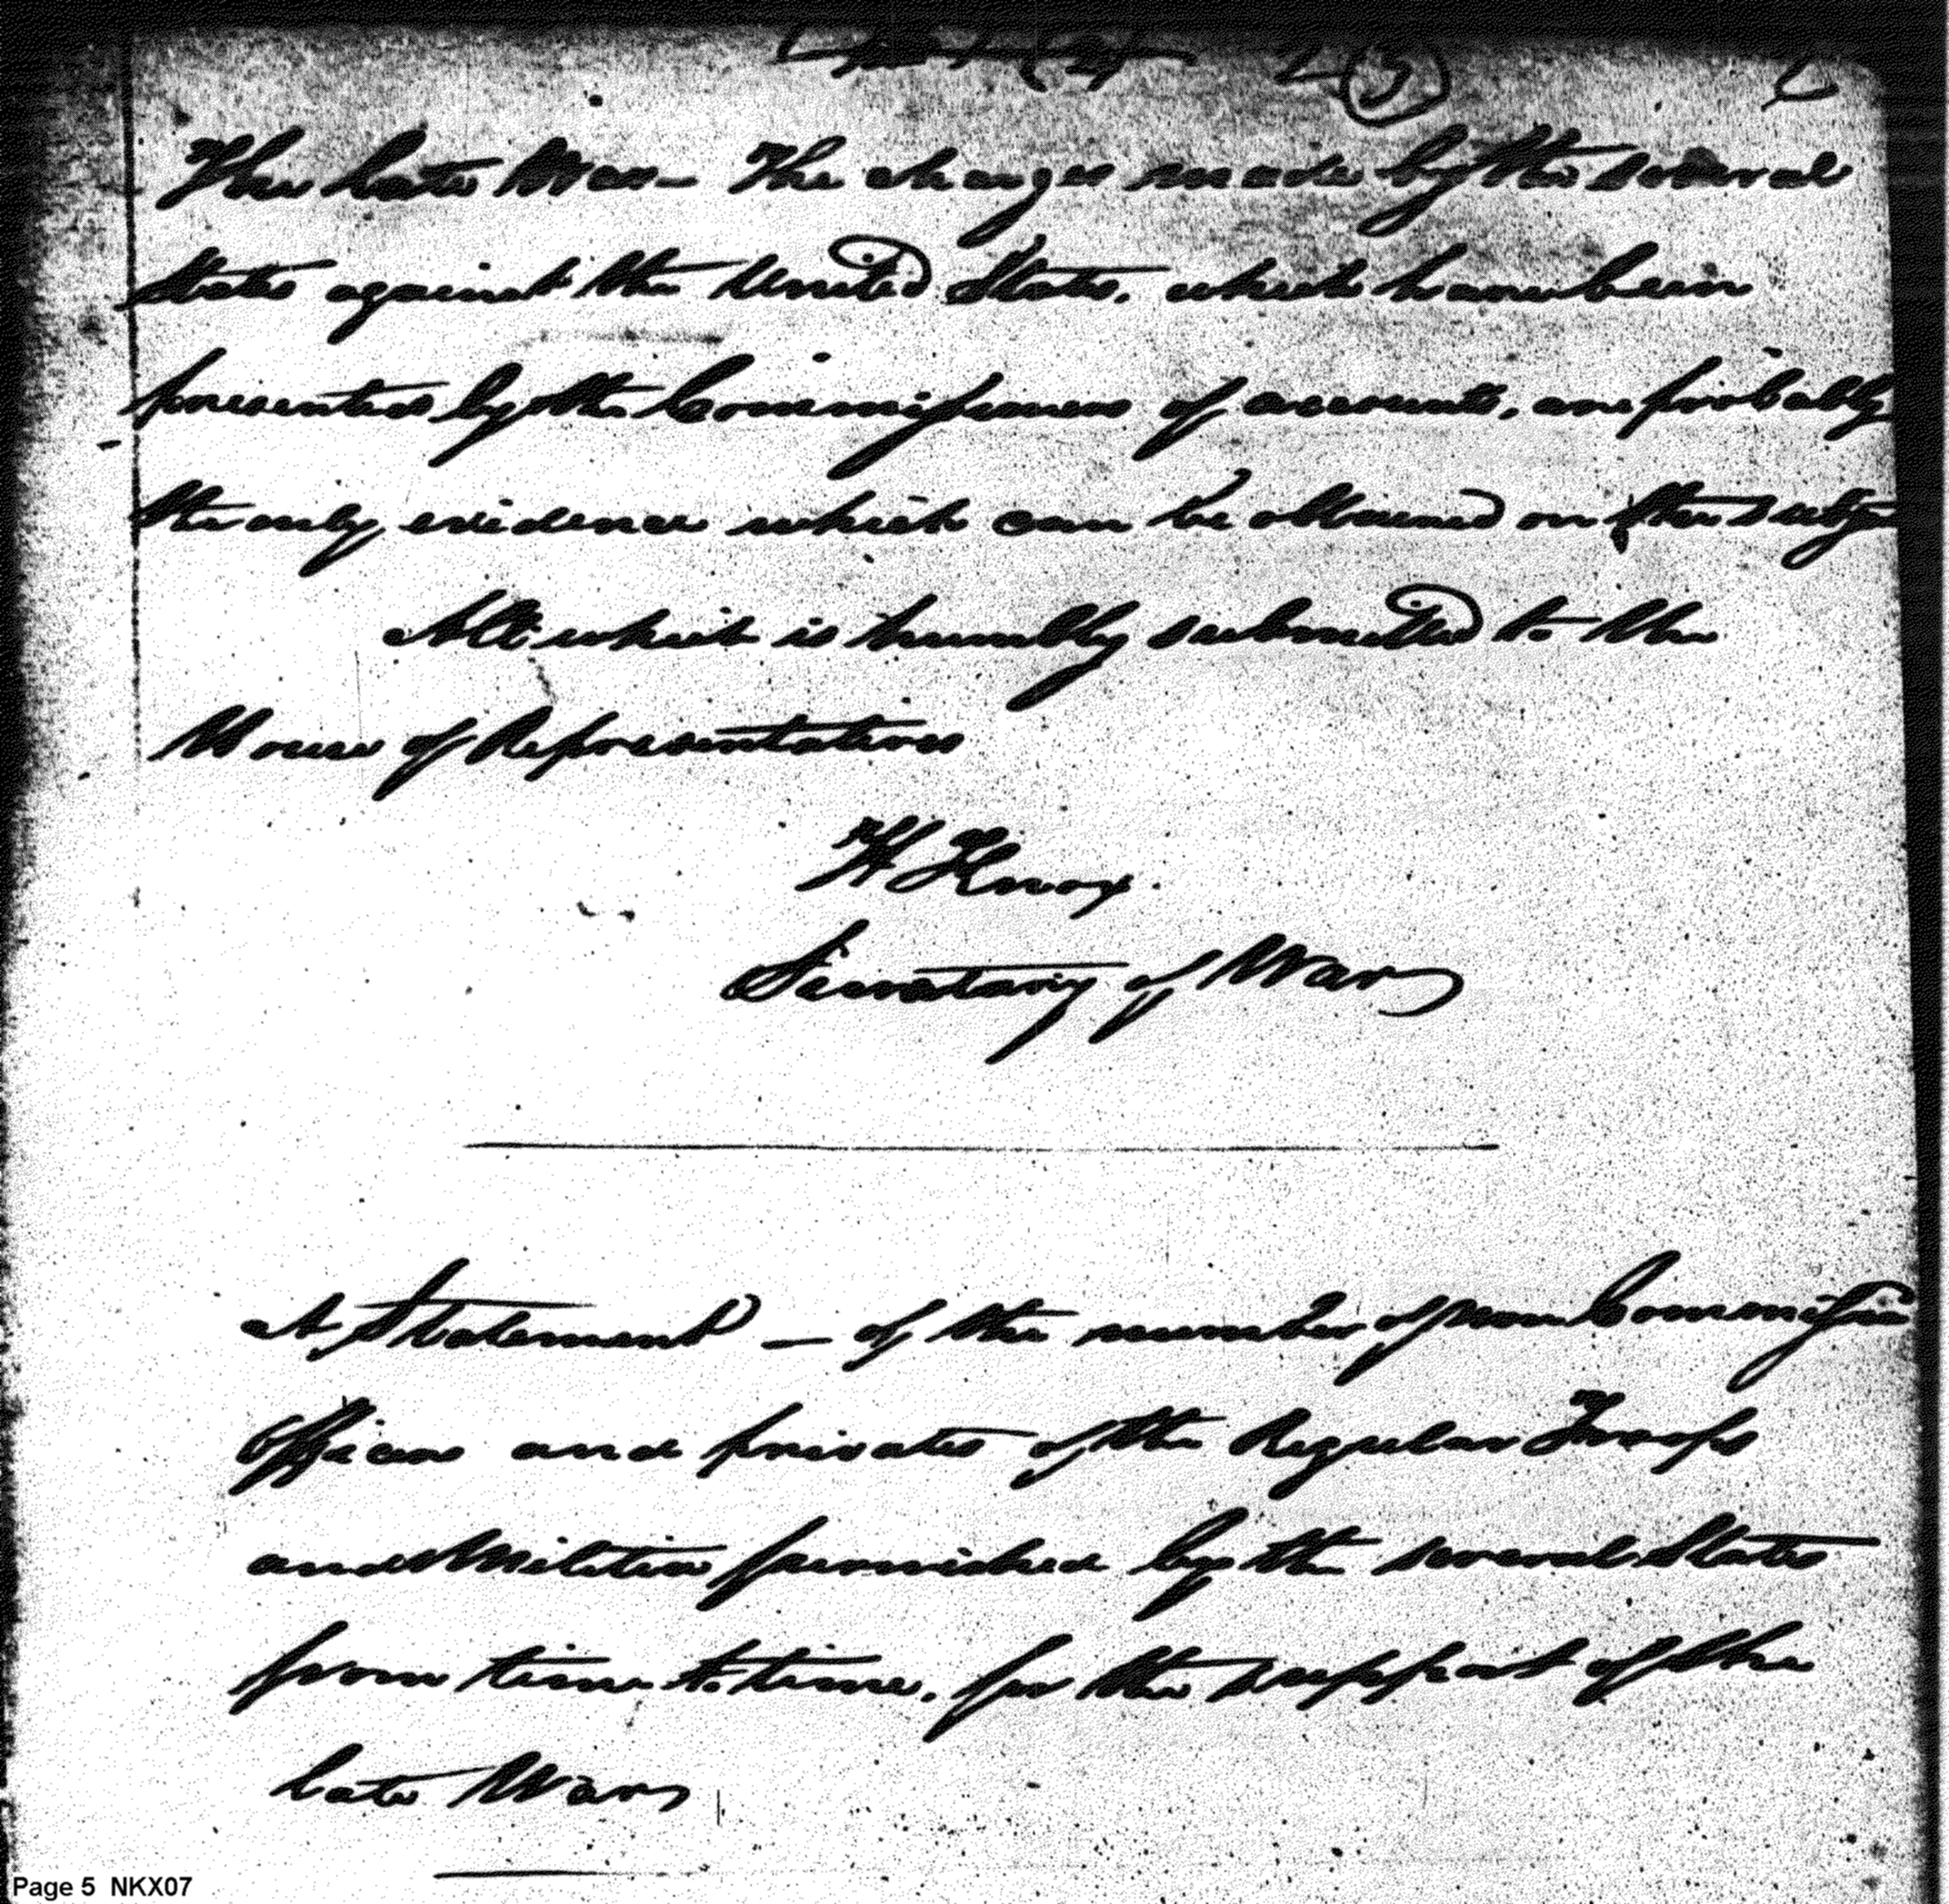 The late War — The charges made by the several
States against the United States, which have been
presented by the Commissioners of accounts, are probably
the only evidence which can be obtained on the subje
All which is humbly submitted to the
House of Representatives
H Knox.
Secretary of War
A Statement — of the number of non Commissio
officers and privates of the Regular Troops
and Militia furnished by the several States
from time to time, for the support of the
late War
Page 5 NKX07